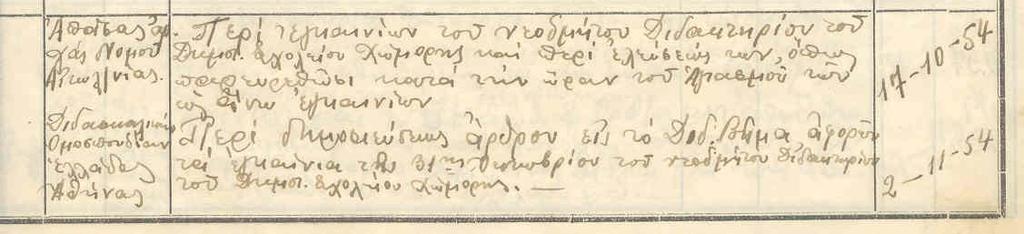 Ἁπάσας ἀρ-
χάς Νομοῦ
Αἰτωλ/νίας.
Περί ἐγκαινίων τοῦ νεοδμήτου Διδακτηρίου τοῦ
Δημοτ. Σχολείου Χώμορης καί περί ἐλεύσεώς των, ὅπως
παρευρεθῶσι κατά την ὥραν τοῦ Ἁγιασμοῦ τῶν
ὡς ἄνω ἐγκαινίων
17-10-54
Διδασκαλικήν
Ὁμοσπονδίαν
Ἑλλάδος
Ἀθήνας
Περί δημοσιεύσεως ἄρθρου εἰς τό Διδ. Βῆμα ἀφορῶν
τά ἐγκαίνια τῆς 31ης Ὀκτωβρίου τοῦ νεοδμήτου Διδακτηρίου
τοῦ Δημοτ. Σχολείου Χώμορης. —
2-11-54